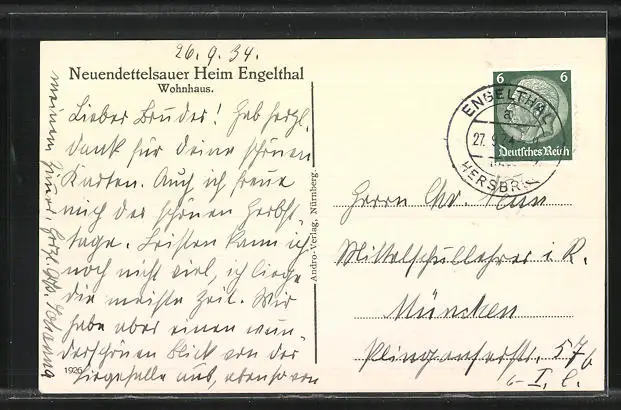 26.9.34.
Neuendettelsauer Heim Engelthal
Wohnhaus.
Lieber Bruder! Hab herzl.
Dank für deine schönen
Karten. Auch ich freue
mich der schönen Herbst-
tage. Leisten kann ich
noch nicht viel, ich liege
die meiste Zeit. Wir
habe aber einen wun-
derschönen Blick von der
Liegehalle aus, ebenso von
meinem Zimmer. Herzl. Johanna
1926
Andro-Verlag, Nürnberg.
6 6
Deutsches Reich
ENGELTHAL
a
27. 9.
HERSBR
Herrn Chr.
Mittelschullehrer i. R.
München
Plinganserstr. 57 b
I. l.